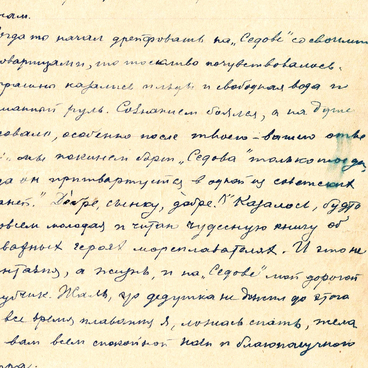 нам.
огда то начал дрейфовать на „Седове" со своими
товарищами, то тоскливо почувствовалось.
казались льды и свободная вода и
манный руль. Сознанием боялся, а на душе
особенно после твоего-вашего отве
мы покинем борт „Седова" только тогда,
да он пришвартуется в одной из советских
аней." Добре, сынку, добре." Казалось, будто
овсем молодая и читаю чудесную книгу об
важных героях мореплавателях. И это не
нтазия, а жизнь, и на „Седове" мой дорогой
убчик. Жаль, что дедушка не дожил до этого
все время плавания я, ложась спать, жела
вам всем спокойной ночи и благополучного